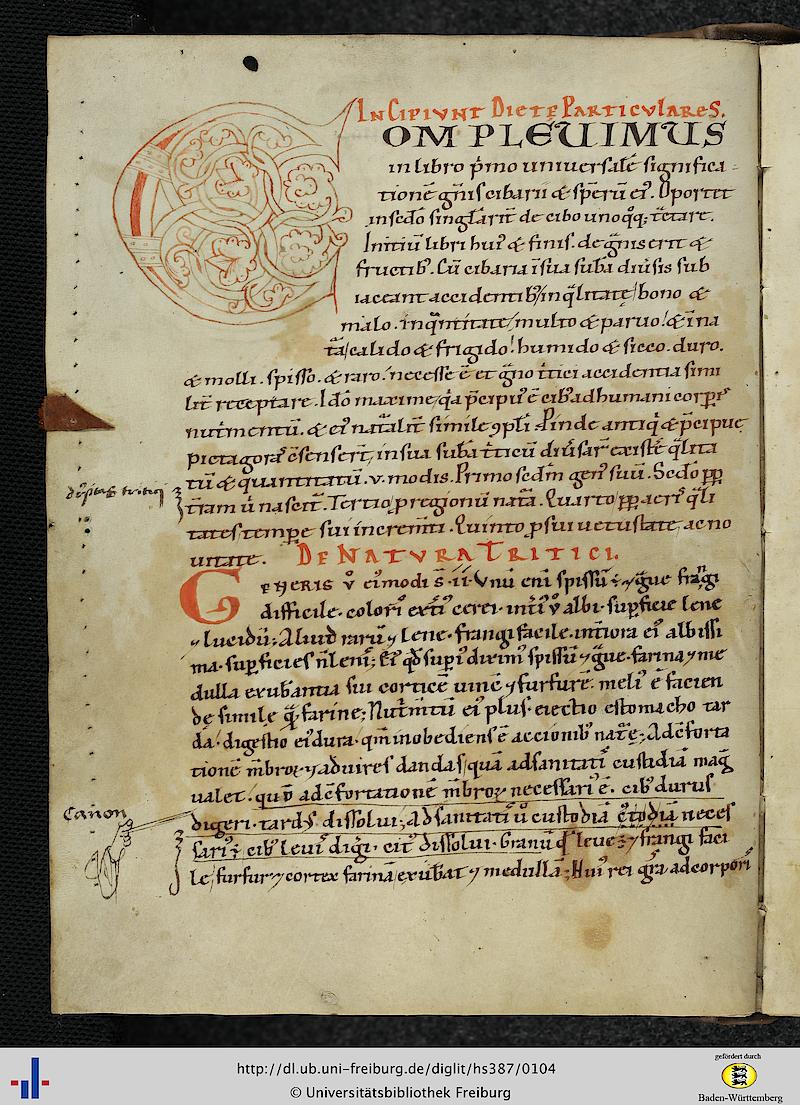 INCIPIVNT DIETE PARTICVLARES.
COMPLEUIMUS
in libro p̄mo uniuersalē significa-
tionē gn̄is cibarii & sp̄erū ei'. Oportet
in sed̄o singlāritˉ de cibo uno qͦq; tr̄etare.
Initiū libri hui' & finis. de gn̄is erit &
fructib'. Cū cibaria īsua sub̄a diūsis sub
iaceant accidentib'/in q̄litate/bono &
malo. in q̄ntitate/multo & paruo! & ī na
tā/calido & frigido! humido & sicco. duro.
& molli. spisso. & raro. necesse ē et gn̄o tˉtici accidentia simi
lit receptare. Idō maxime/q̄a p̄cipu' ē cib' ad humani corpr̄is
nutm̄entū. & ei' natālit simile 9pl̄i. Vnde antiq̄ & p̄cipue
pictagorā c̄senserˉt, in sua sub̄a tˉticū diūsar̄ existē q̄lita
tū & quantitatū. v. modis. Primo sedm̄ gen' suū. Sed̄o pp̄
tˉram ū nascit. Tertio/p regionū natā. Quarto/pp̄ aeri' q̄li
tates tempe sui incremˉti. Quinto/p sui uetustate. ac no
uitate. DE NATVRA TRITICI.
GENERIS v̊ ei' modi s̄. ii. Vnū enī spissū ⁊ g̈ue frangi
difficile. colorˉ extˉi cerei. intˉi v̊ albi. sup̄ficie lene
⁊ lucidū; Aliud rarū ⁊ lene. frangi facile. intˉiora ei' albissi
ma. sup̄ficies n̄ lenis; Ei' qd̄ sup̄i' dixim' spissū ⁊ g̈ue. farina ⁊ me
dulla exub̄antia sui corticē uincˉ ⁊ furfurē. meli' ē facien
de simile q̄ farine; Nutm̄tū ei' plus. eiectio estomacho tar
da. digestio ei' dura. qm̄ inobediens ē accionib' natˉe; Ad c̄forta
tionē mb̄roꝝ ⁊ ad uires dandas/quā ad sanitatis custodiā mag̈
ualet. quo ad c̄fortationē mb̄roꝝ necessari' ē. cib' durus
digeri. tard' dissolui; Ad sanitatis ū custodiā neces
sari' ē cib' leuis digˉi. cit' dissolui. Granū q̄ leue ⁊ frangi faci
le/furfur ⁊ cortex farinā/exub̄at ⁊ medullā; Hui' rei gr̄a ad corporis
Canon
http://dl.ub.uni-freiburg.de/diglit/hs387/0104
© Universitätsbibliothek Freiburg
gefördert durch
Baden-Württemberg